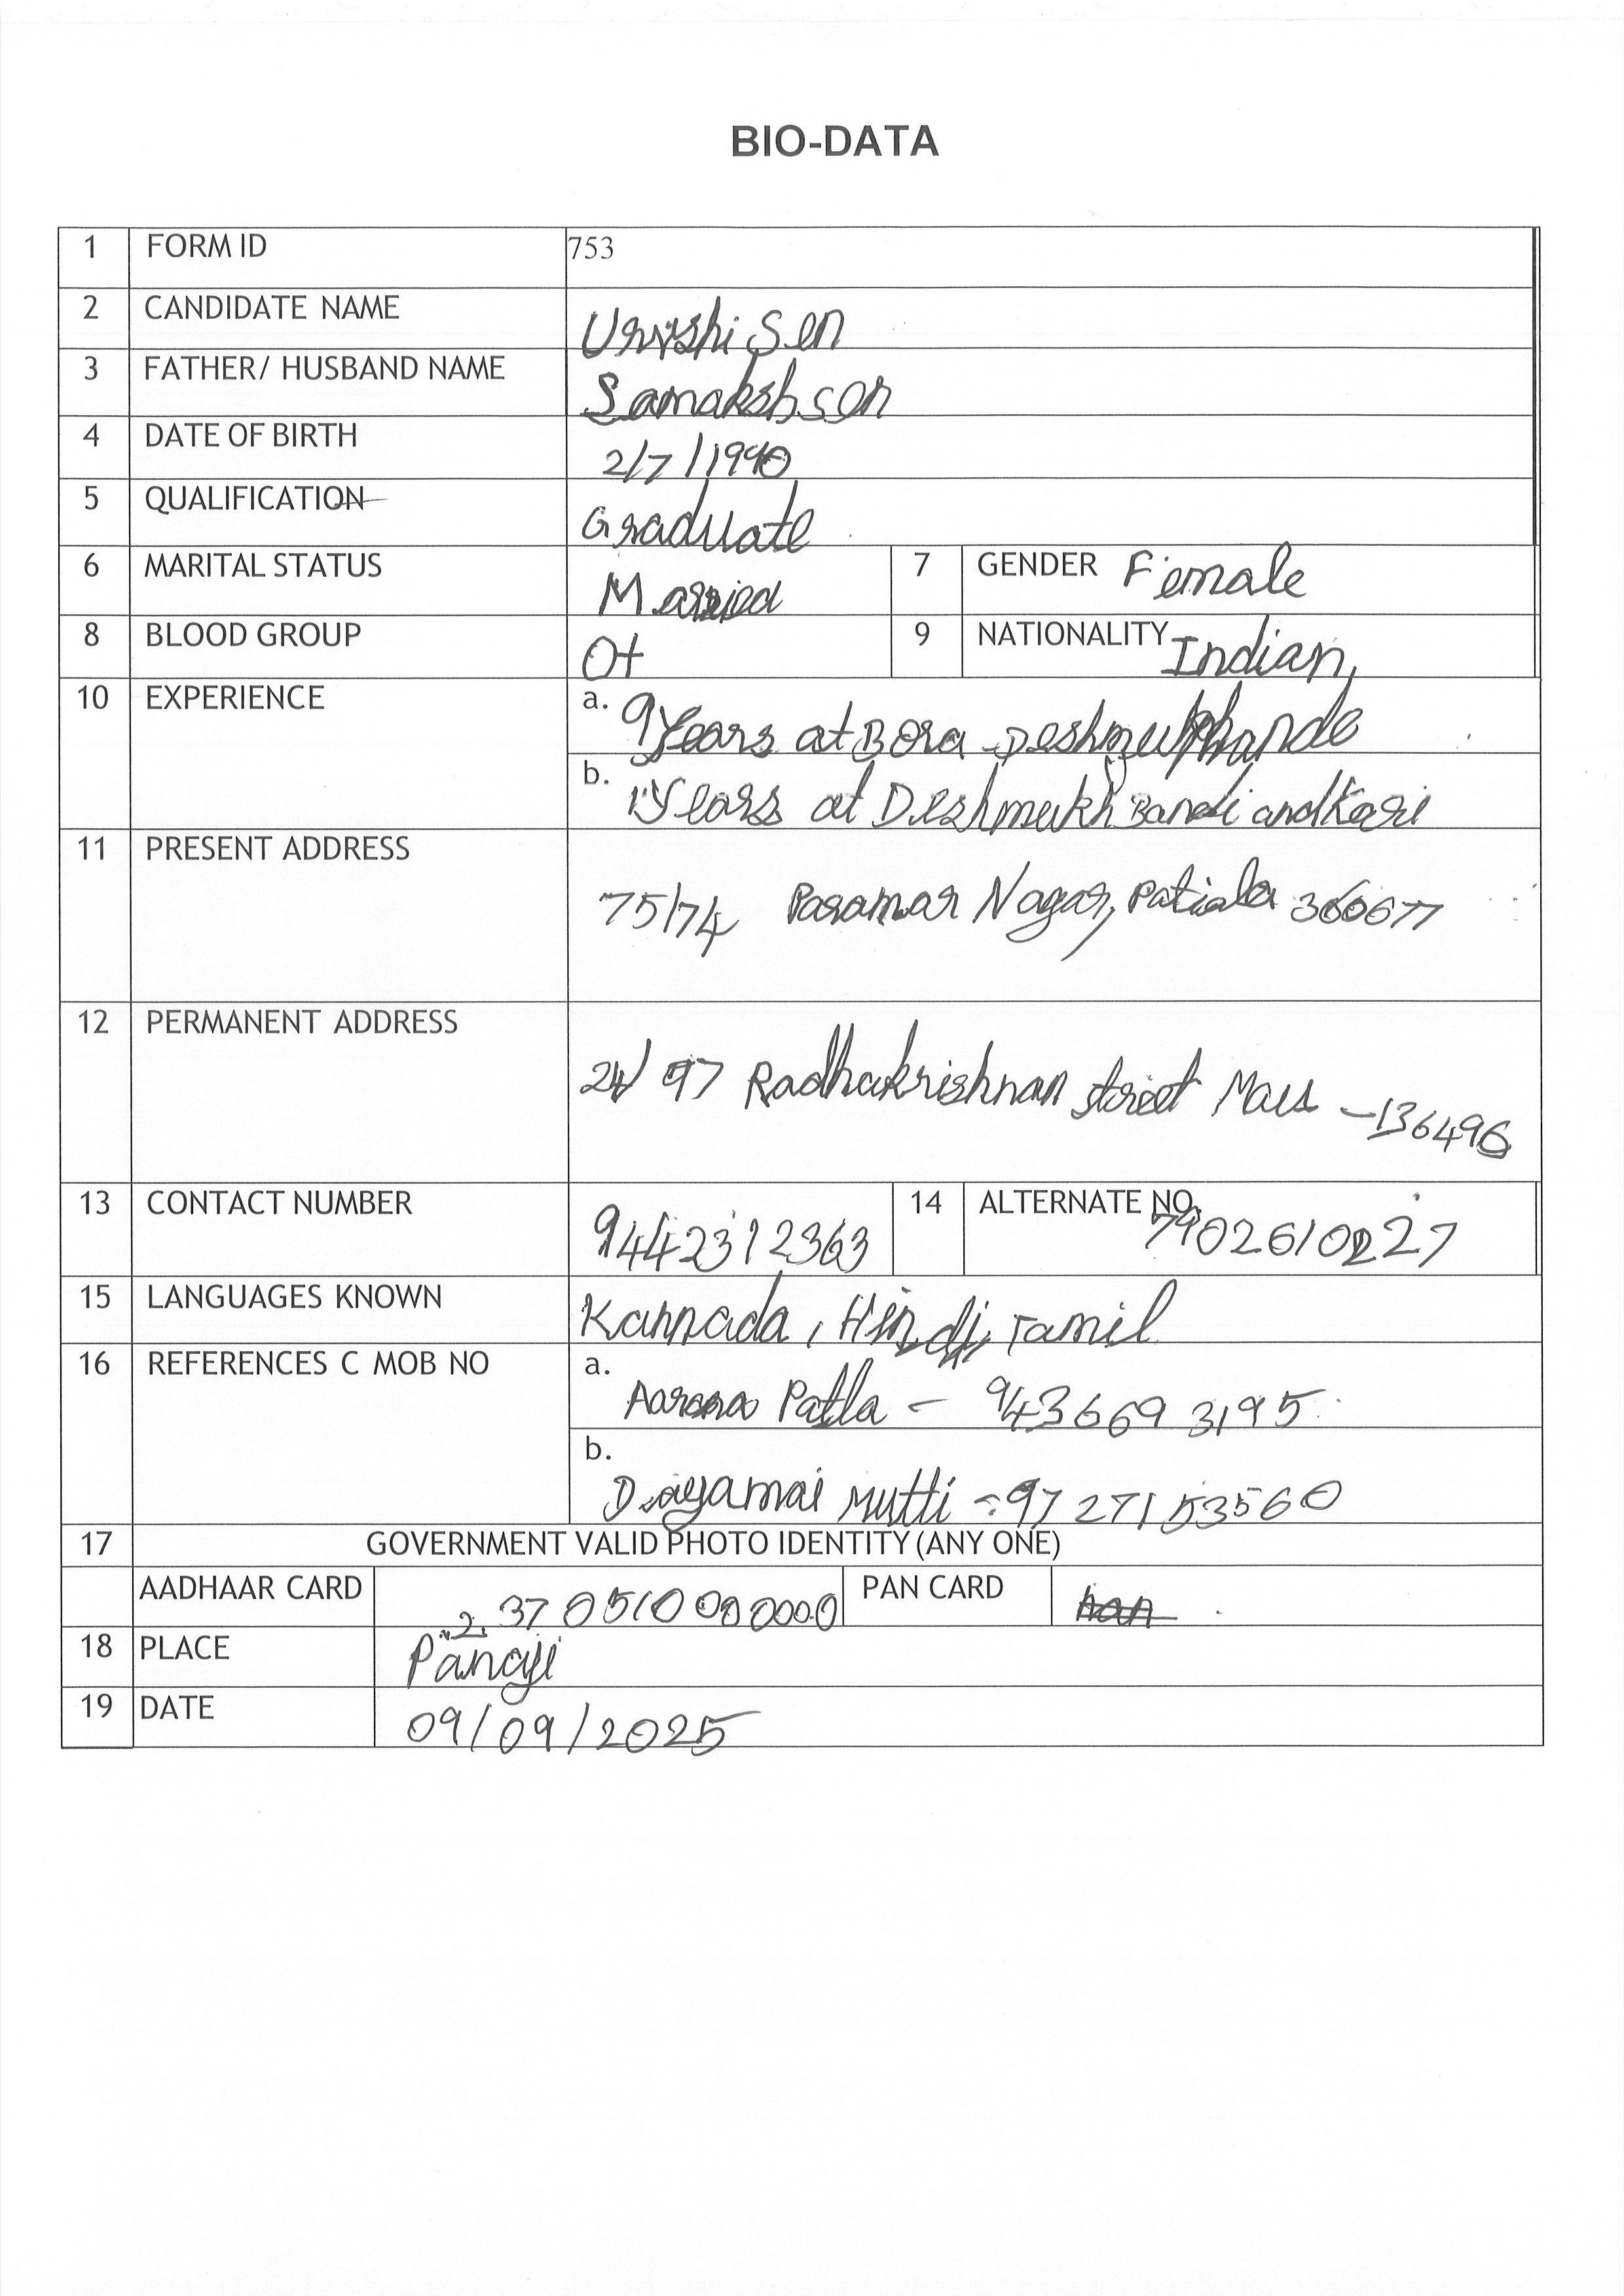 BIO-DATA
1 FORM ID 753
2 CANDIDATE NAME Urvshi Sen
3 FATHER/ HUSBAND NAME Samaksh sen
4 DATE OF BIRTH 2/7/1990
5 QUALIFICATION Graduate
6 MARITAL STATUS Married 7 GENDER Female
8 BLOOD GROUP O+ 9 NATIONALITY Indian,
10 EXPERIENCE a. 9 Years at Bora - Deshmukh
b. Years at Deshmukh Bandi and Kari
11 PRESENT ADDRESS 75/74 Paramar Nagar, Patiala 360677
12 PERMANENT ADDRESS 24/97 Radhakrishnan street Maus - 136496
13 CONTACT NUMBER 9442312363 14 ALTERNATE NO. 7902610227
15 LANGUAGES KNOWN Kannada, Hindi, Tamil
16 REFERENCES C MOB NO a.
Patla - 9436693195
b.
Dayamai Mutti - 9727153560
17 GOVERNMENT VALID PHOTO IDENTITY (ANY ONE)
AADHAAR CARD PAN CARD
18 PLACE Panaji
19 DATE 09/09/2025